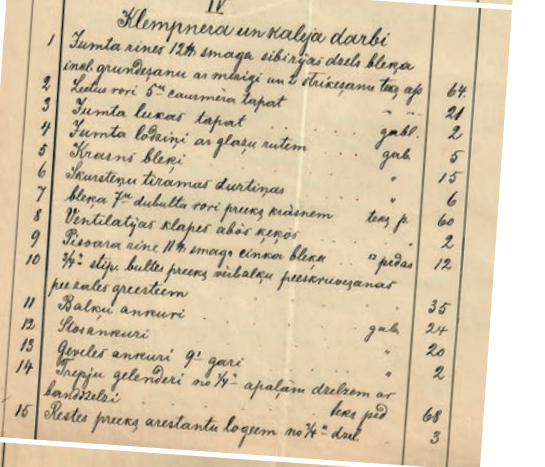 IV
Klempnera un kaleja darbi
1 Jumta rines 12 ℔ smaga sibirijas dzels bleķa
inkl. grundešanu ar mezigi un 2 strikešanu tekz. 64.
2 Leetus rori 5" caurmēra tapat " " 21
3 Jumta lukas tapat gabl. 2
4 Jumta lodziņi ar glazu rutem gab. 5
5 Krasns bleķi " 15
6 Skursteņu tiramas durtiņas " 6
7 bleķa 7" dubulta rori preekš krāsnem tekz p. 60
8 Ventilatijas klapes abās " 2
9 Pisoara rine 11 ℔ smaga cinka bleķa " pedas 12
10 3/4" stip. bultes preekš virbalķu peeskruvešanas
pee zales greesteem " 35
11 Balķu ankuri gab. 24
12 Stosankuri " 20
13 Geveles ankuri 9' gari " 2
14 Trepju gelenderi no 3/4" apaļam dzelzem ar
banddzelzi tekz ped 68
15 Restes preekš arestantu logeem no 3/4" dzel. 3